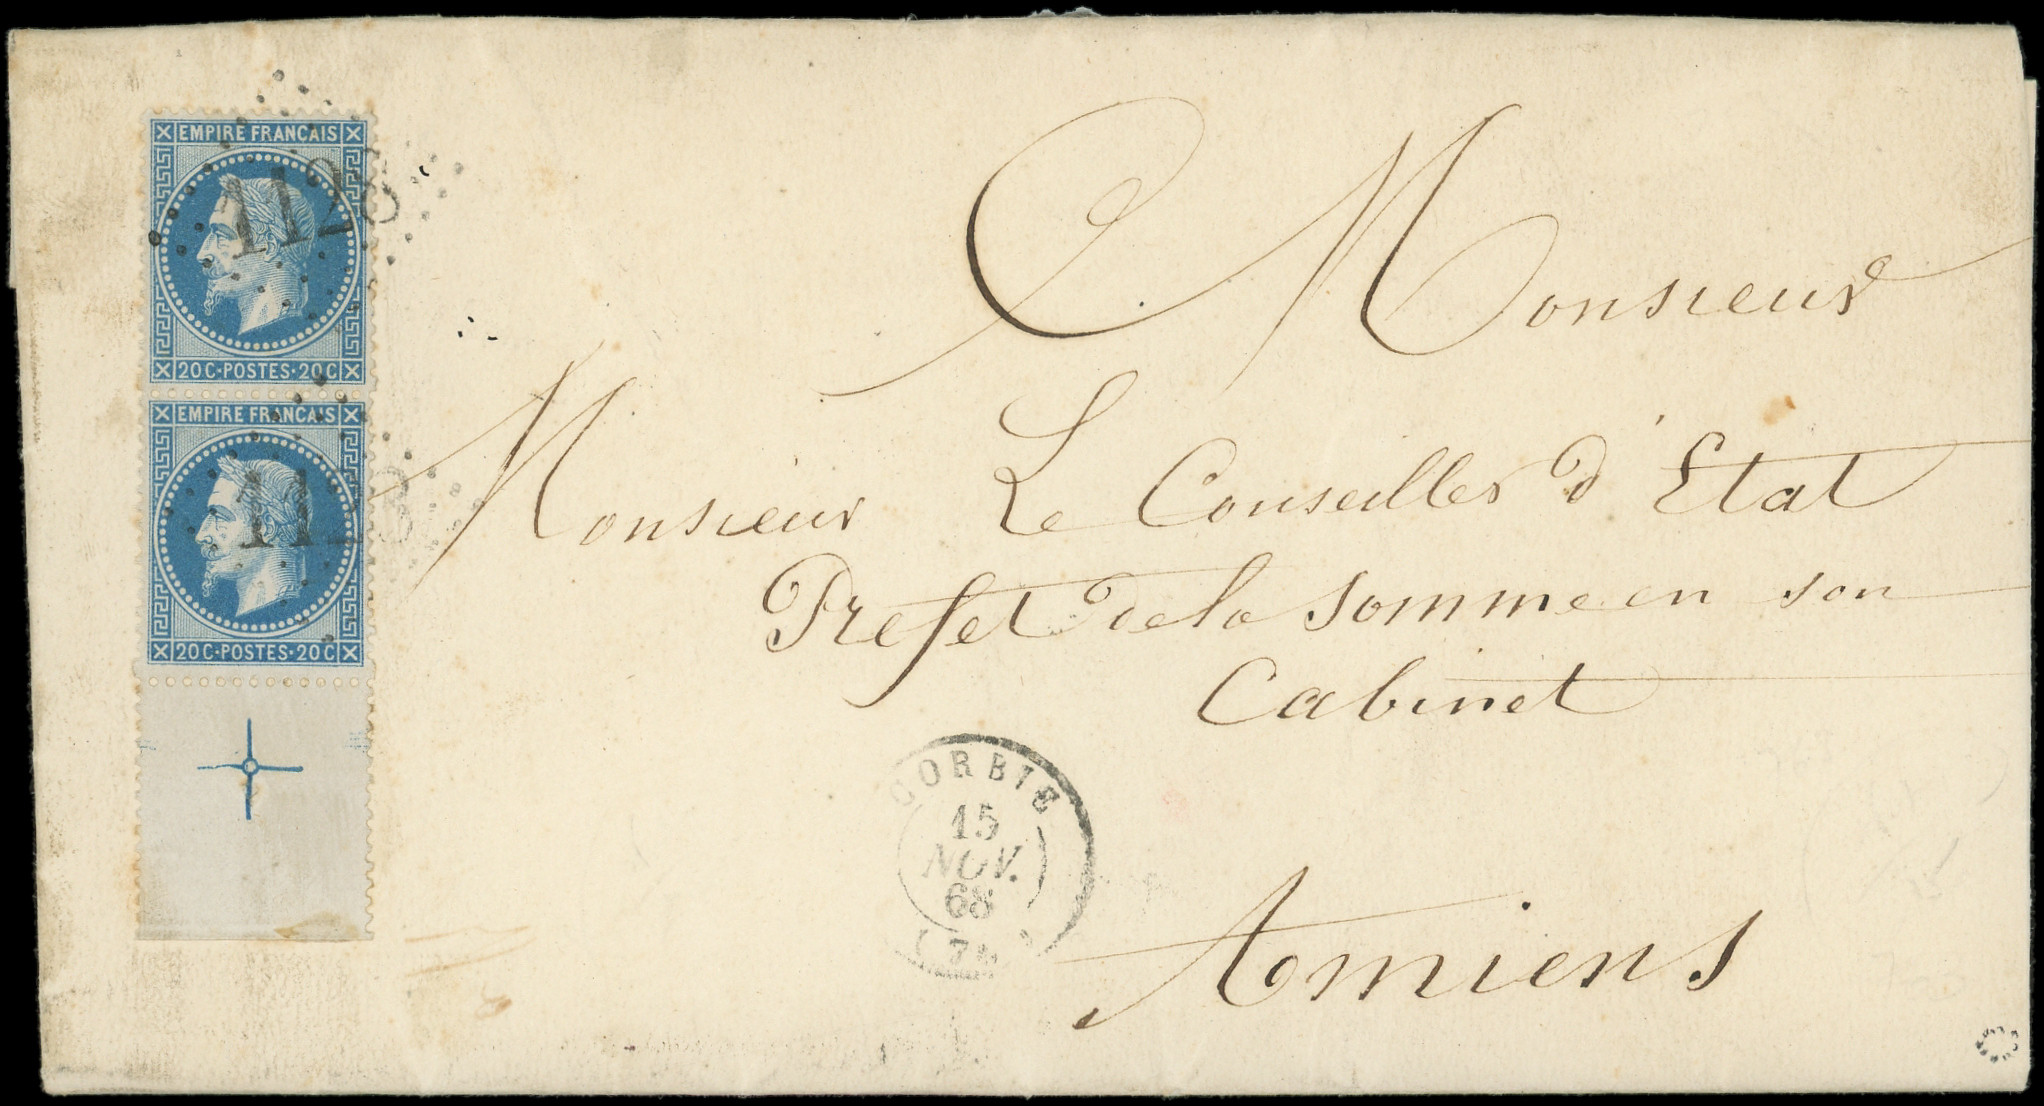 EMPIRE FRANCAIS
1128
20C·POSTES·20C
EMPIRE FRANCAIS
1128
20C·POSTES·20C
Monsieur
Monsieur Le Conseiller d'Etat
Prefet de la Somme en son
Cabinet
CORBIE
15
NOV.
68
Amiens